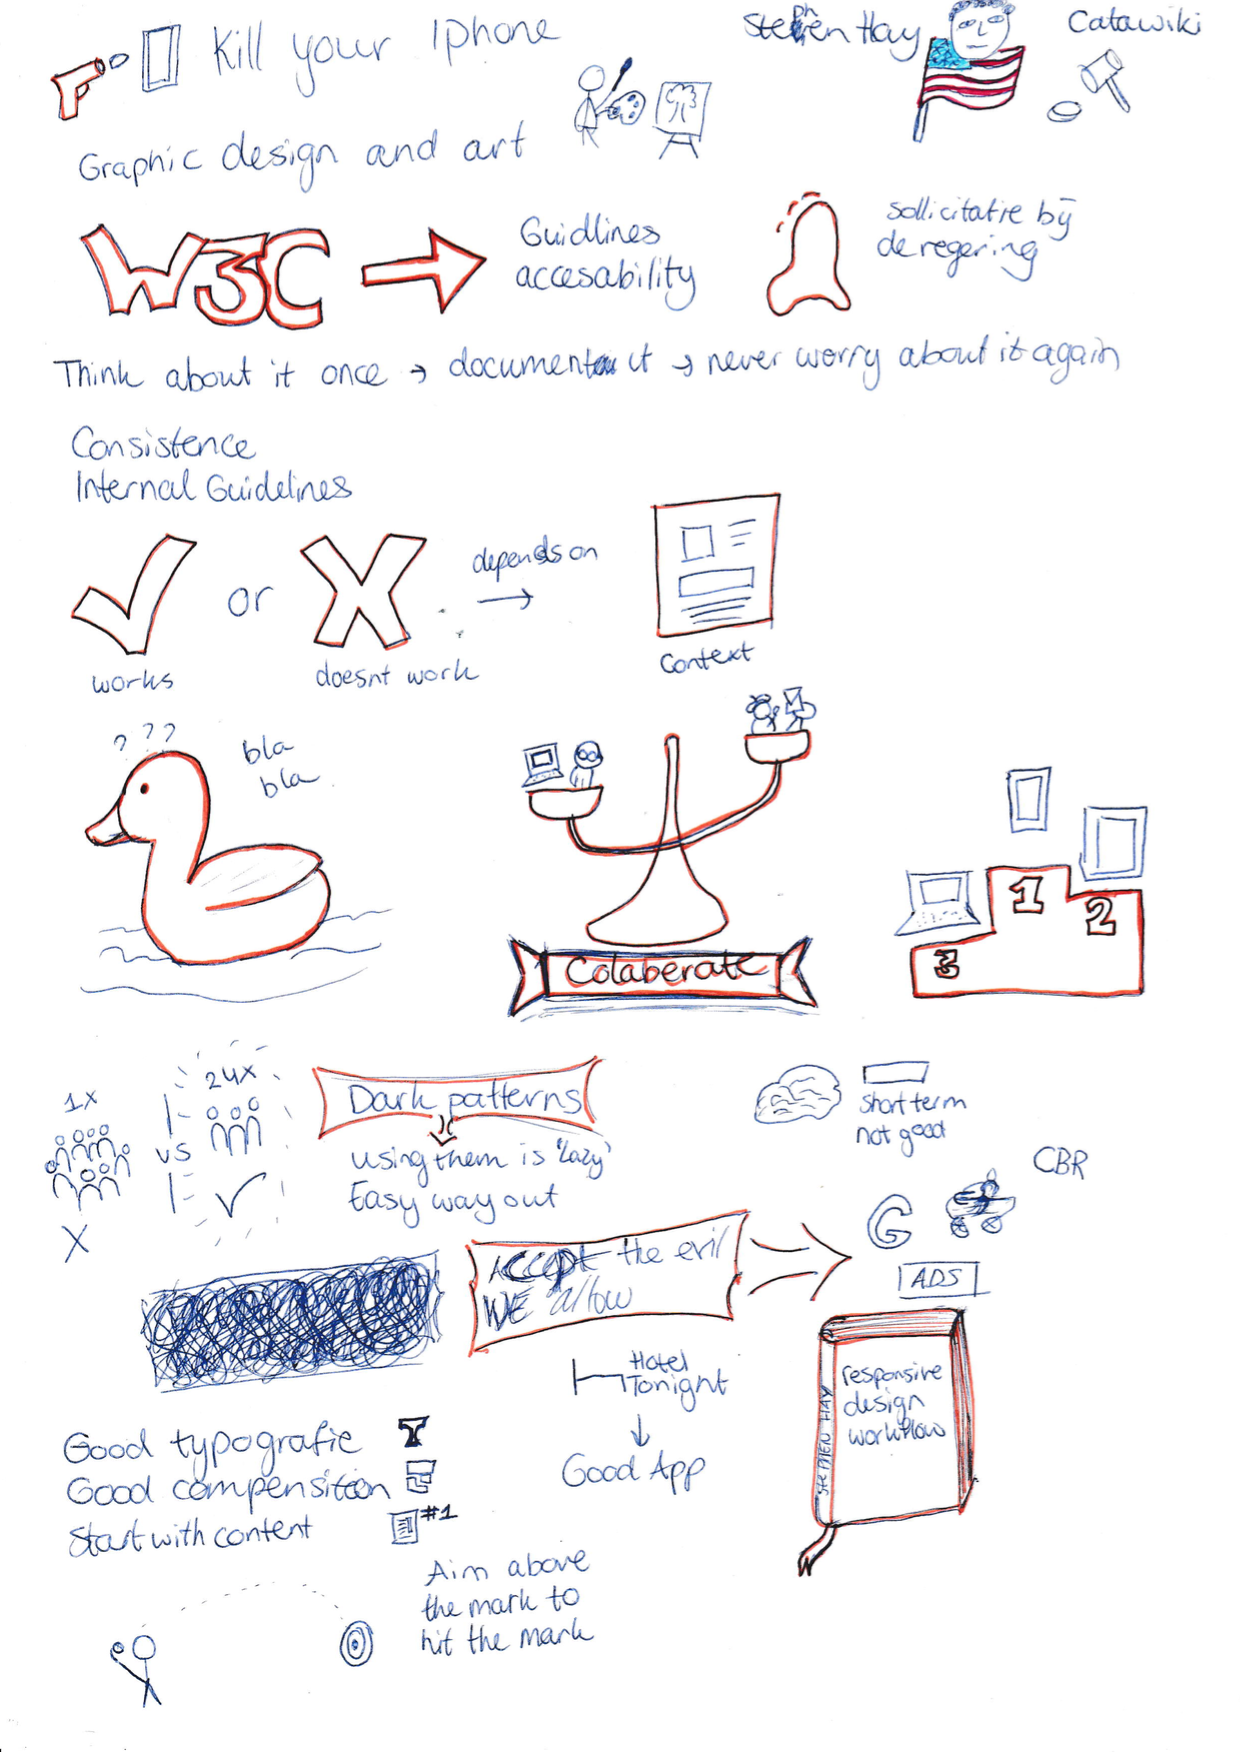 Kill your Iphone
Stephen Hay
Catawiki
Graphic design and art
W3C
Guidlines
accesability
Sollicitatie bij
de regering
Think about it once → document it → never worry about it again
Consistence
Internal Guidelines
or
depends on
works
doesnt work
Context
? ? ?
bla
bla
Colaberate
1
2
3
1x
vs
24x
X
Dark patterns
using them is 'Lazy'
Easy way out
short term
not good
CBR
G
ADS
Accept the evil
WE allow
Hotel
Tonight
Good App
STEPHEN HAY
responsive
design
workflow
Good typografie T
Good compensition
Start with content #1
Aim above
the mark to
hit the mark